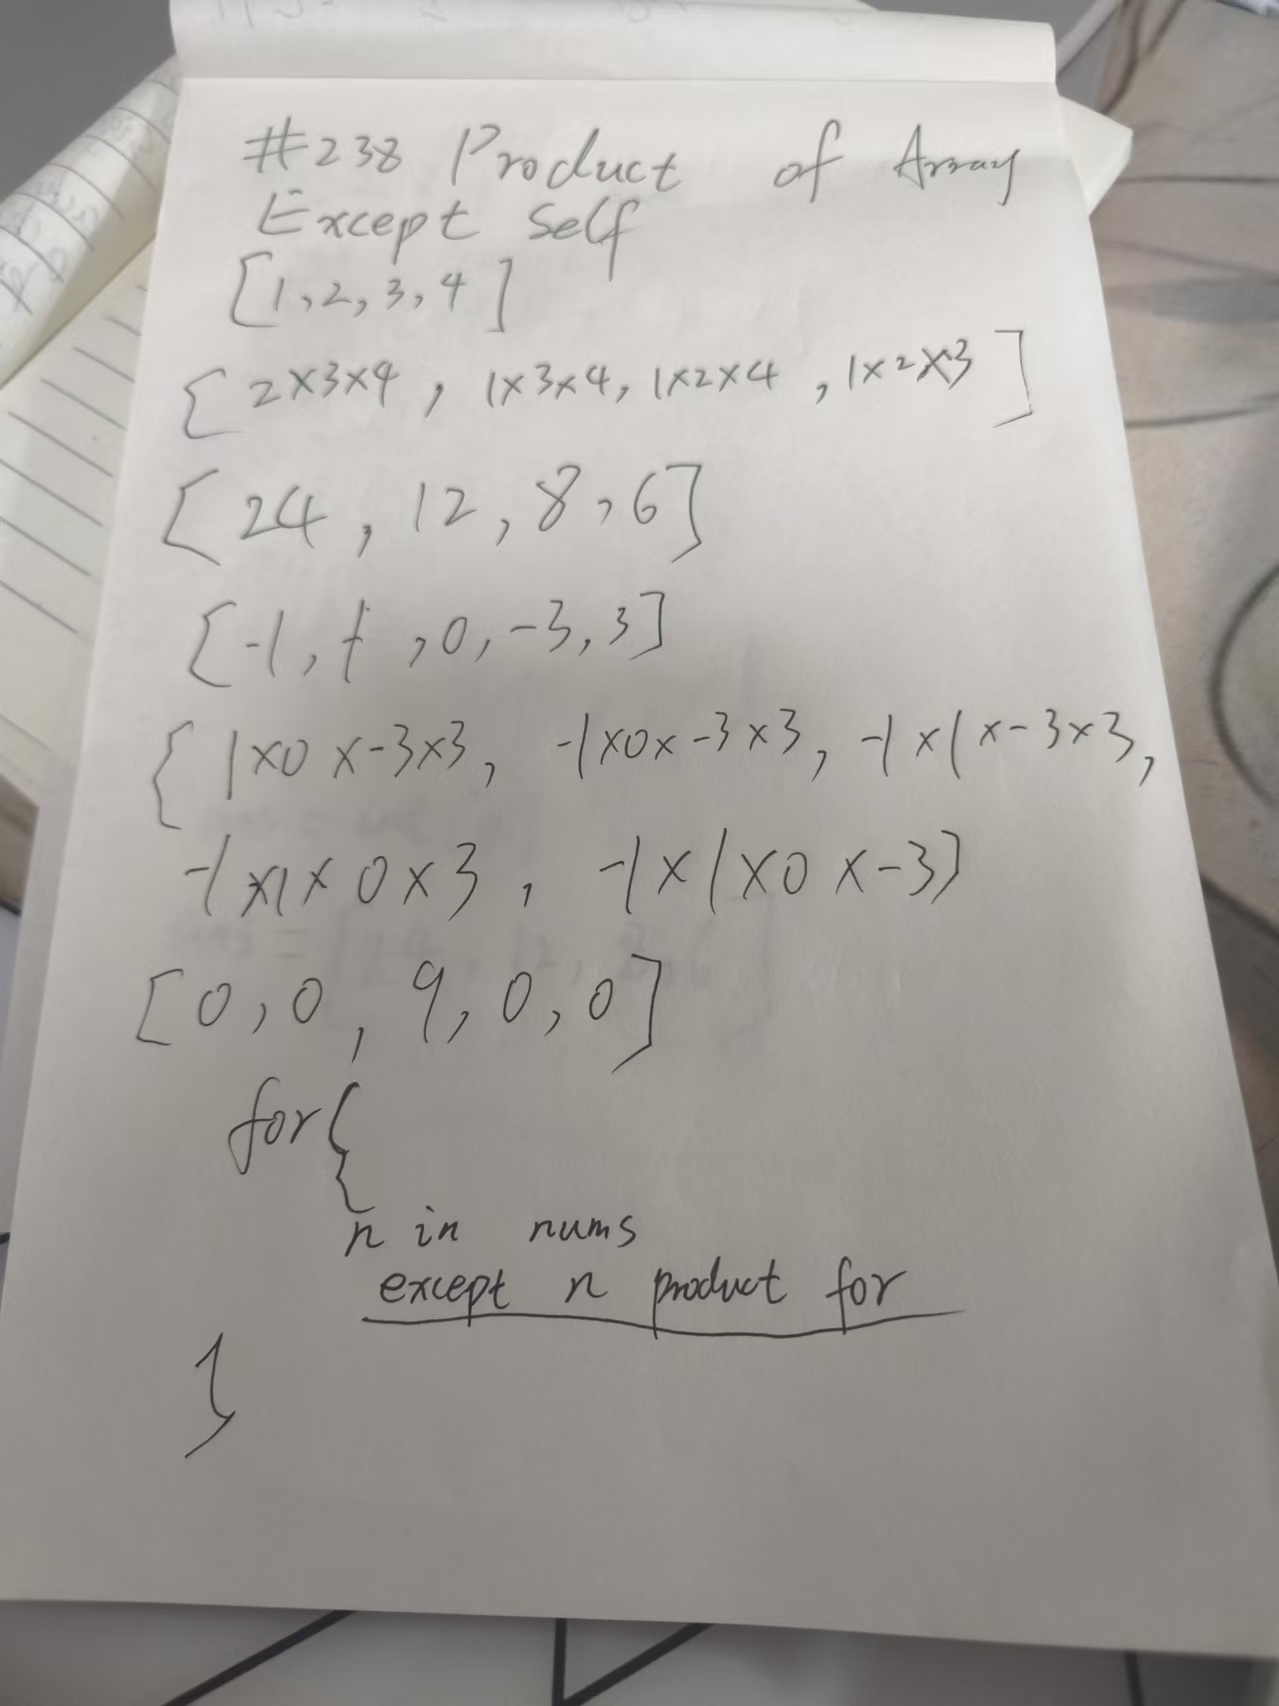 #238 Product of Array
Except Self
[1,2,3,4]
[2×3×4, 1×3×4, 1×2×4, 1×2×3]
[24, 12, 8, 6]
[-1, 1, 0, -3, 3]
{1×0×-3×3, -1×0×-3×3, -1×1×-3×3,
-1×1×0×3, -1×1×0×-3}
[0, 0, 9, 0, 0]
for{
n in nums
except n product for
}